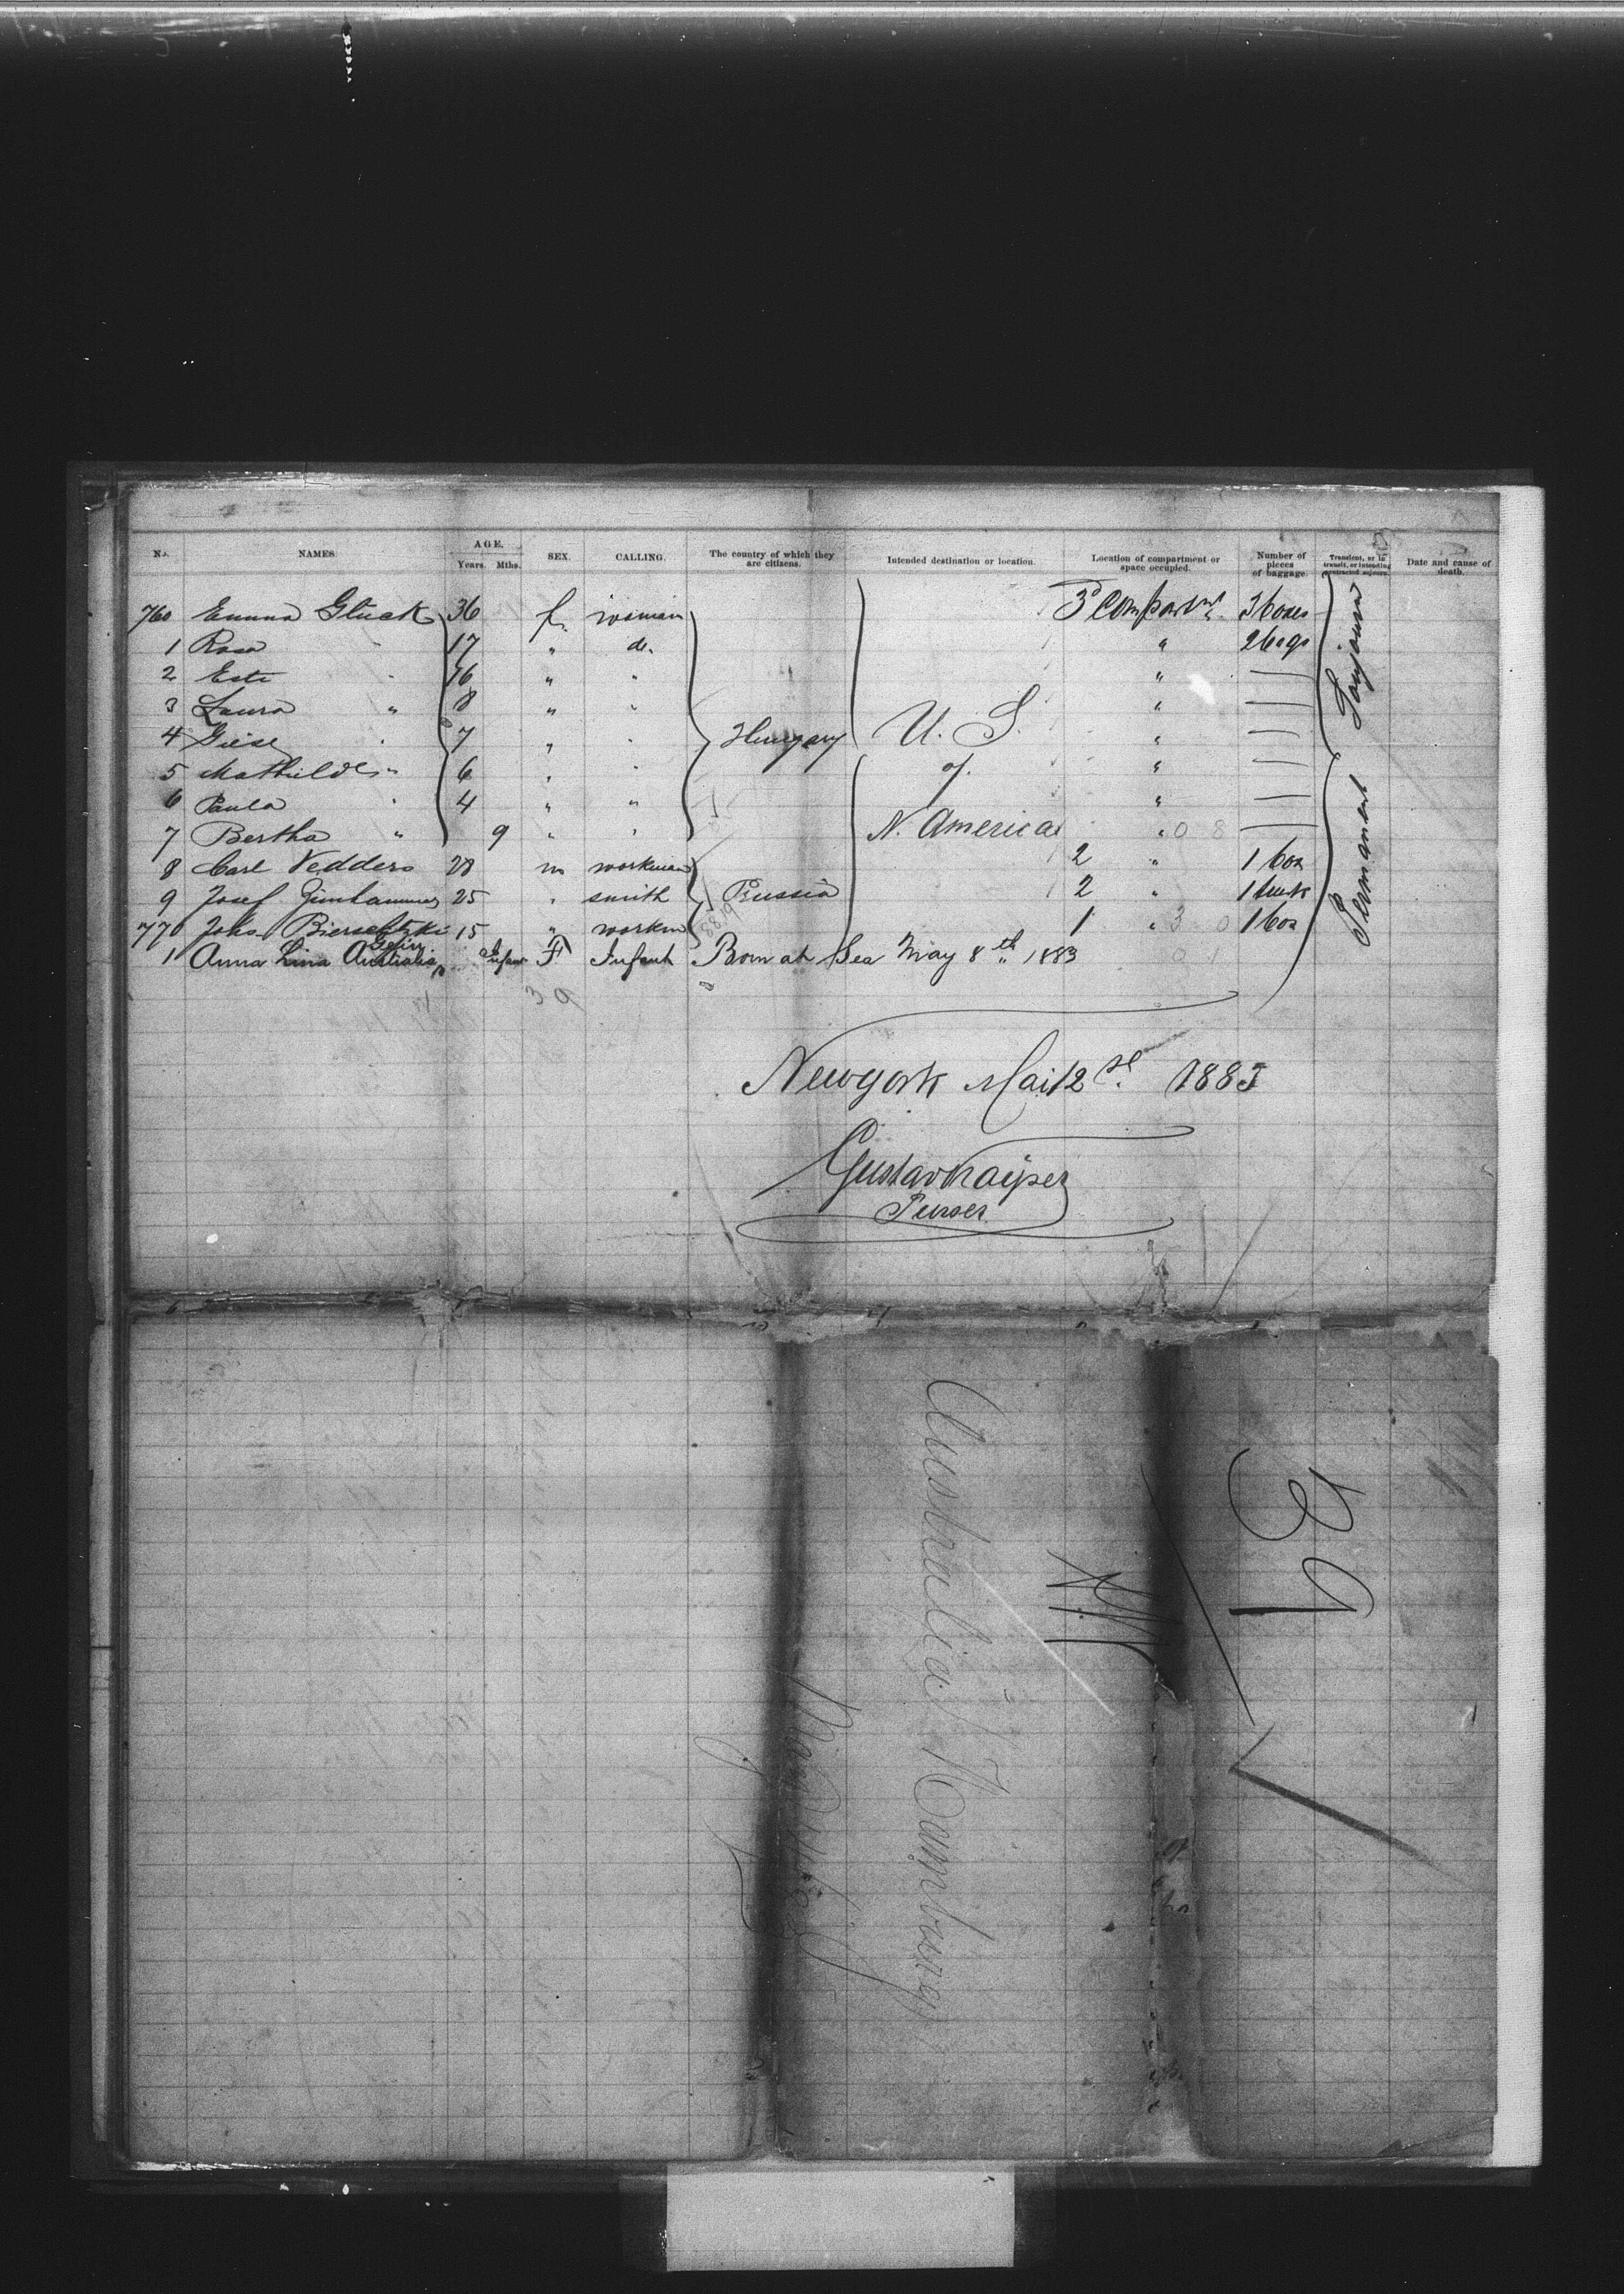 No. NAMES AGE. Years. Mths. SEX. CALLING. The country of which they are citizens. Intended destination or location. Location of compartment or space occupied. Number of pieces of baggage. Transient, or in transit, or intending protracted sojourn. Date and cause of death.
760 Emma Glück 36 f. woman 3d Compartmt. 3 boxes
1 Rosa " 17 " do. " 2 bags
2 Este " 16 " " "
3 Laura " 8 " " "
4 Giese " 7 " " Hungary U. S. "
5 Mathilde " 6 " " of "
6 Paula " 4 " " "
7 Bertha " 9 " " N. America " 0 8
8 Carl Vedders 28 m workman 2 " 1 box
9 Josef 25 " smith Prussia 2 " 1 trunk
770 Johs 15 " workm 1 " 3 0 1 box
1 Anna Lina Australia Infant F Infant Born at Sea May 8th 1883 0 1
Sojourn
Permanent
39
Newyork Mai 12 1883
Gustav Kayser
Purser
39
Australia Hamburg
May